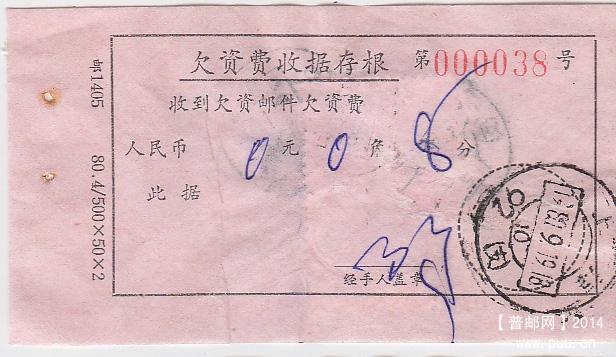 欠资费收据存根 第000038号
收到欠资邮件欠资费
人民币 0 元 0 角 8 分
此据
经手人盖章
邮1405 80.4/500×50×2
【普邮网】2014
www.puu.cn